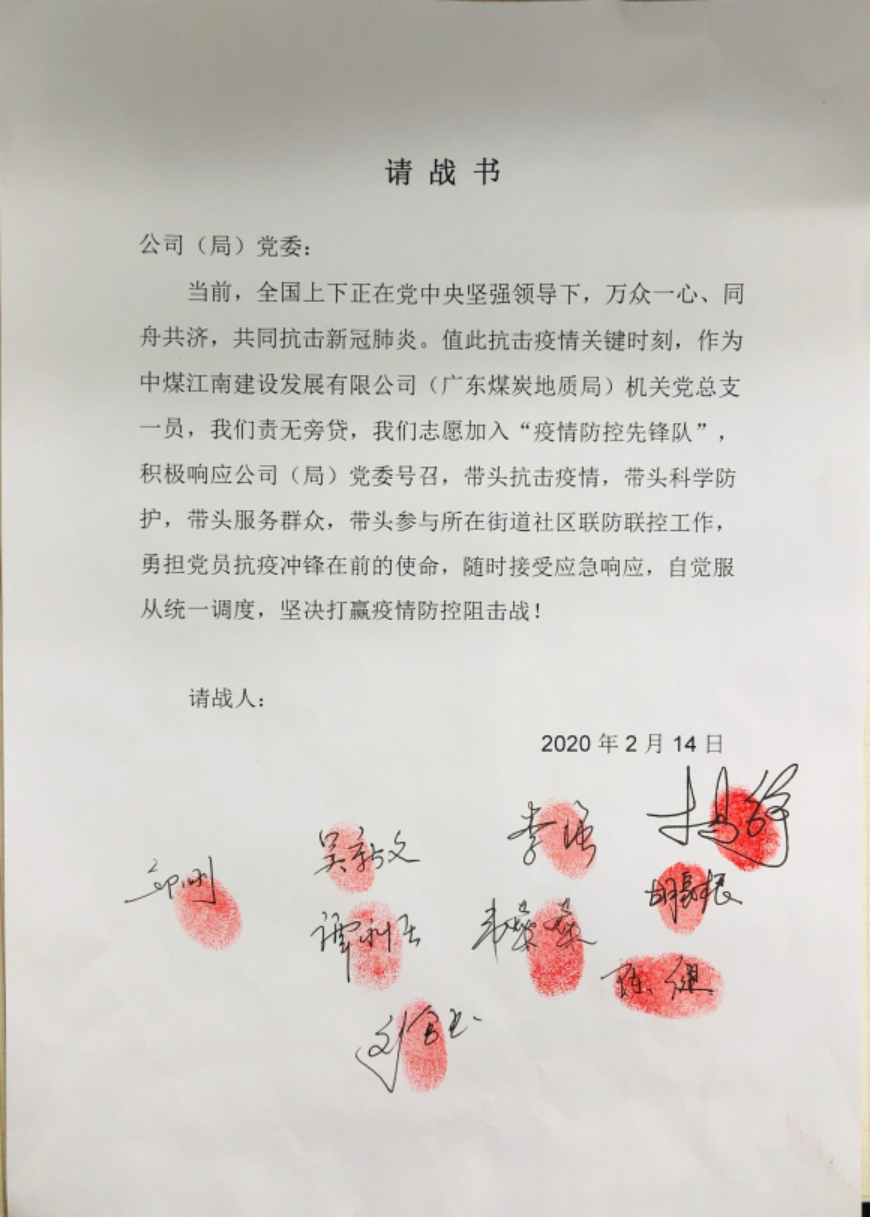 请战书
公司（局）党委：
当前，全国上下正在党中央坚强领导下，万众一心、同
舟共济，共同抗击新冠肺炎。值此抗击疫情关键时刻，作为
中煤江南建设发展有限公司（广东煤炭地质局）机关党总支
一员，我们责无旁贷，我们志愿加入“疫情防控先锋队”，
积极响应公司（局）党委号召，带头抗击疫情，带头科学防
护，带头服务群众，带头参与所在街道社区联防联控工作，
勇担党员抗疫冲锋在前的使命，随时接受应急响应，自觉服
从统一调度，坚决打赢疫情防控阻击战！
请战人：
2020年2月14日
吴新文
李强
韦燊燊
陈健